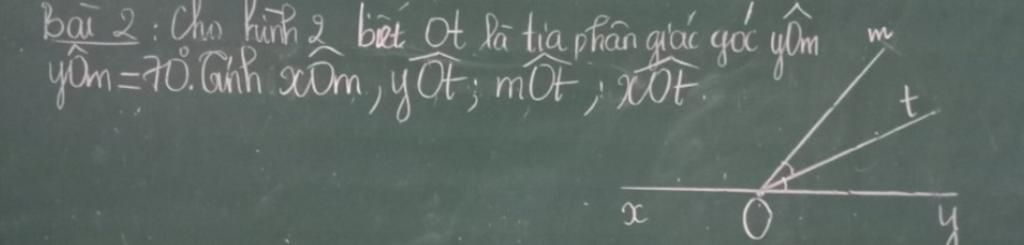 Bài 2: Cho hình 2 biết Ot là tia phân giác góc yÔm
yÔm = 70°. Tính xÔm, yÔt; mÔt; xÔt.
m
t
x O y